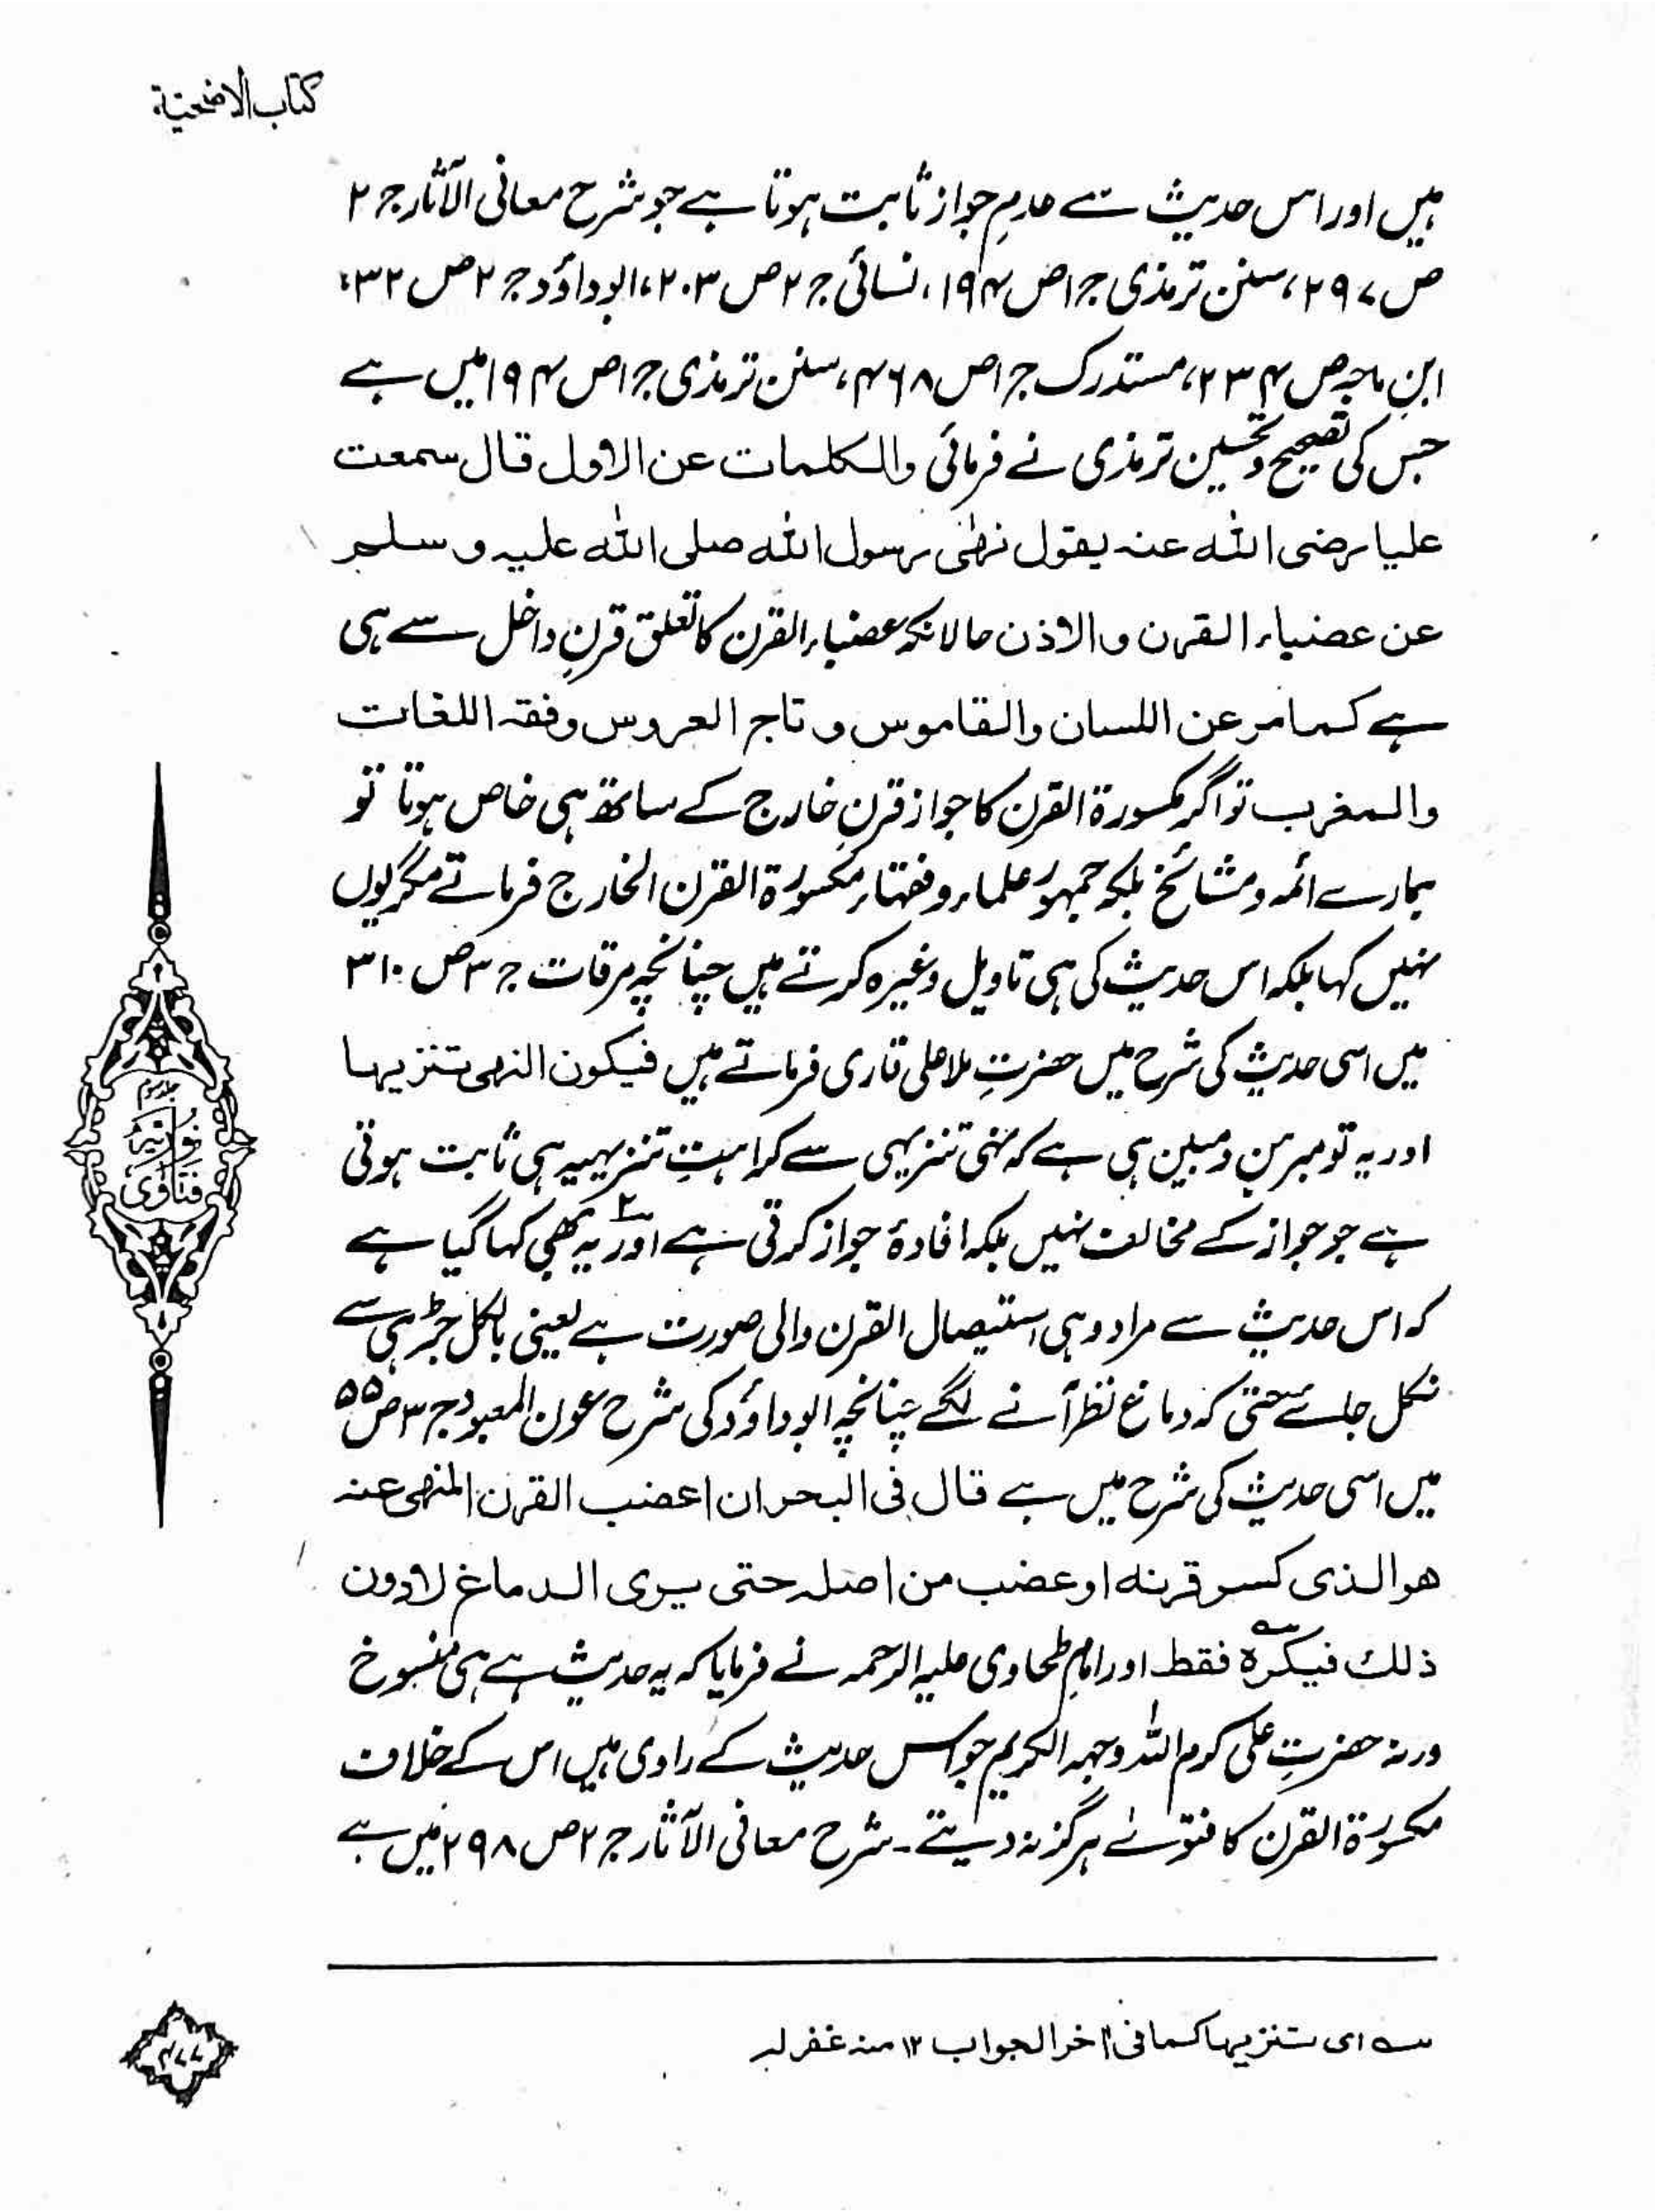 کتاب الاضحیّة
ہیں اور اس حدیث سے عدمِ جواز ثابت ہوتا ہے جو شرح معانی الآثار ج ۲
ص ۲۹۷، سنن ترمذی ج ۱ ص ۱۹۴، نسائی ج ۲ ص ۲۰۳، ابوداؤد ج ۲ ص ۳۲،
ابنِ ماجہ ص ۲۳۴، مستدرک ج ۱ ص ۴۶۸، سنن ترمذی ج ۱ ص ۱۹۴ میں ہے
جس کی تصحیح و تحسین ترمذی نے فرمائی والکلمات عن الاول قال سمعت
علیا رضی اللہ عنہ یقول نھٰی رسول اللہ صلی اللہ علیہ و سلم
عن عضباء القرن والاذن حالانکہ عضباء القرن کا تعلق قرنِ داخل سے ہی
ہے کما مر عن اللسان والقاموس و تاج العروس و فقہ اللغات
والمغرب تو اگر مکسورۃ القرن کا جواز قرنِ خارج کے ساتھ ہی خاص ہوتا تو
ہمارے ائمہ و مشائخ بلکہ جمہور علماء و فقہاء مکسورۃ القرن الخارج فرماتے مگر یوں
نہیں کہا بلکہ اس حدیث کی ہی تاویل وغیرہ کرتے ہیں چنانچہ مرقات ج ۳ ص ۳۱۰
میں اسی حدیث کی شرح میں حضرتِ ملا علی قاری فرماتے ہیں فیکون النھی تنزیھا
اور یہ تو مبرہن و مبین ہی ہے کہ نہی تنزیہی سے کراہتِ تنزیہیہ ہی ثابت ہوتی
ہے جو جواز کے مخالف نہیں بلکہ افادۂ جواز کرتی ہے اور۲ یہ بھی کہا گیا ہے
کہ اس حدیث سے مراد وہی استیصال القرن والی صورت ہے یعنی بالکل جڑ ہی سے
نکل جائے حتی کہ دماغ نظر آنے لگے چنانچہ ابوداؤد کی شرح عون المعبود ج ۳ ص ۵۵
میں اسی حدیث کی شرح میں ہے قال فی البحر ان اعضب القرن المنھی عنہ
ھو الذی کسر قرنہ او عضب من اصلہ حتی یری الدماغ لا دون
ذلك فیکرہ؎ فقط اور امام طحاوی علیہ الرحمہ نے فرمایا کہ یہ حدیث ہے ہی منسوخ
ورنہ حضرتِ علی کرم اللہ وجہہ الکریم جو اس حدیث کے راوی ہیں اس کے خلاف
مکسورۃ القرن کا فتوےٰ ہرگز نہ دیتے۔ شرح معانی الآثار ج ۲ ص ۲۹۸ میں ہے
؎ ای تنزیھا کما فی اٰخر الجواب ۱۲ منہ غفرلہ
فتاوٰی نوریہ
جلد سوم
۴۷۷